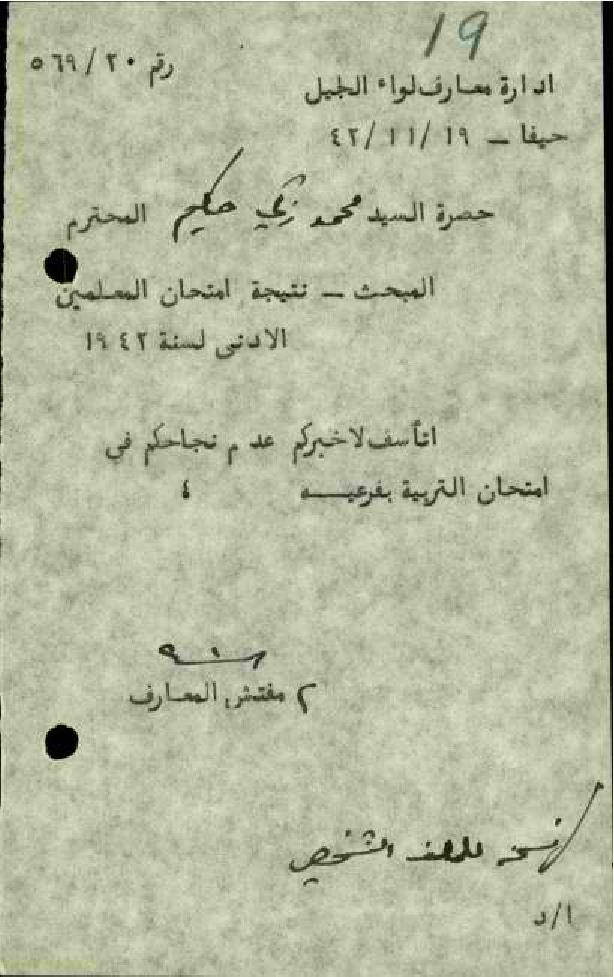 19
رقم ٥٦٩/٢٠
ادارة معارف لواء الجبل
حيفا – ١٩/١١/٤٢
حضرة السيد محمد زكي حكيم المحترم
المبحث – نتيجة امتحان المعلمين
الادنى لسنة ١٩٤٢
اتأسف لاخبركم عدم نجاحكم في
امتحان التربية بفرعيه ٤
م مفتش المعارف
نسخه للملف الشخصي
ا/د